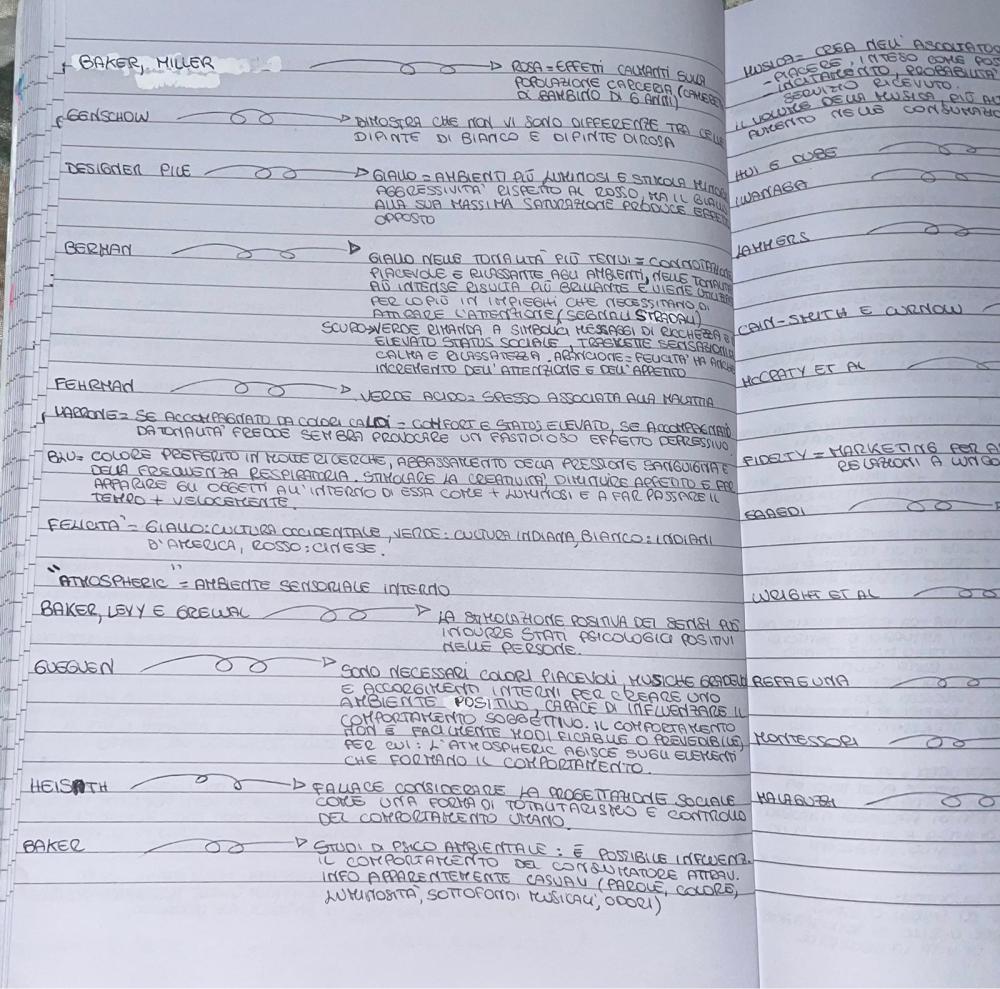 BAKER, MILLER → ROSA = EFFETTI CALMANTI SULLA
POPOLAZIONE CARCERIA, (CAMERE
DI BAMBINO DI 6 ANNI)
GENSCHOW → DIMOSTRA CHE NON VI SONO DIFFERENZE TRA CELLE
DIPINTE DI BIANCO E DIPINTE DI ROSA
DESIGNER PILE → GIALLO = AMBIENTI PIÙ LUMINOSI E STIMOLA MINORE
AGGRESSIVITÀ RISPETTO AL ROSSO, MA IL GIALLO
ALLA SUA MASSIMA SATURAZIONE PRODUCE EFFETTO
OPPOSTO
BERMAN → GIALLO NELLE TONALITÀ PIÙ TENUI = CONNOTAZIONE
PIACEVOLE E RILASSANTE AGLI AMBIENTI, NELLE TONALITÀ
PIÙ INTENSE RISULTA PIÙ BRILLANTE E VIENE UTILIZZ
PER LO PIÙ IN IMPIEGHI CHE NECESSITANO DI
ATTIRARE L'ATTENZIONE (SEGNALI STRADALI)
SCURO→VERDE RIMANDA A SIMBOLICI MESSAGGI DI RICCHEZZA E
ELEVATO STATUS SOCIALE, TRASMETTE SENSAZIONI
CALMA E RILASSATEZZA. ARANCIONE = FELICITÀ HA ANCHE
INCREMENTO DELL'ATTENZIONE E DELL'APPETITO
FEHRMAN → VERDE ACIDO = SPESSO ASSOCIATA ALLA MALATTIA
MARRONE = SE ACCOMPAGNATO DA COLORI CALDI = COMFORT E STATUS ELEVATO, SE ACCOMPAGNATO
DA TONALITÀ FREDDE SEMBRA PROVOCARE UN FASTIDIOSO EFFETTO DEPRESSIVO.
BLU = COLORE PREFERITO IN MOLTE RICERCHE, ABBASSAMENTO DELLA PRESSIONE SANGUIGNA E
DELLA FREQUENZA RESPIRATORIA. STIMOLARE LA CREATIVITÀ, DIMINUIRE APPETITO E FAR
APPARIRE GLI OGGETTI ALL'INTERNO DI ESSA COME + LUMINOSI E A FAR PASSARE IL
TEMPO + VELOCEMENTE.
FELICITÀ = GIALLO: CULTURA OCCIDENTALE, VERDE: CULTURA INDIANA, BIANCO: INDIANI
D'AMERICA, ROSSO: CINESE.
"ATMOSPHERIC" = AMBIENTE SENSORIALE INTERNO
BAKER, LEVY E GREWAL → LA STIMOLAZIONE POSITIVA DEI SENSI PUÒ
INDURRE STATI PSICOLOGICI POSITIVI
NELLE PERSONE.
GUEGUEN → SONO NECESSARI COLORI PIACEVOLI, MUSICHE GRADEVOLI
E ACCORGIMENTI INTERNI PER CREARE UNO
AMBIENTE POSITIVO, CAPACE DI INFLUENZARE IL
COMPORTAMENTO SOGGETTIVO. IL COMPORTAMENTO
NON È FACILMENTE MODIFICABILE O PREVEDIBILE,
PER CUI: L'ATMOSPHERIC AGISCE SUGLI ELEMENTI
CHE FORMANO IL COMPORTAMENTO.
HEISATH → FALLACE CONSIDERARE LA PROGETTAZIONE SOCIALE
COME UNA FORMA DI TOTALITARISMO E CONTROLLO
DEL COMPORTAMENTO UMANO.
BAKER → STUDI DI PSICO AMBIENTALE: È POSSIBILE INFLUENZ.
IL COMPORTAMENTO DEL CONSUMATORE ATTRAV.
INFO APPARENTEMENTE CASUALI (PAROLE, COLORE,
LUMINOSITÀ, SOTTOFONDI MUSICALI, ODORI)
MUSICA = CREA NELL'ASCOLTATORE
- PIACERE, INTESO COME POS
- INCITAMENTO, PROBABILITÀ
SERVIZIO RICEVUTO.
IL VOLUME DELLA MUSICA PIÙ
AUMENTO NELLE CONSUMAZIO
HUI E DUBE
IWANAGA
LAMMERS
CAIN-SMITH E CURNOW
MCCRATY ET AL
FIDELTY = MARKETING PER
RELAZIONI A LUNGO
SAAEDI
WRIGHT ET AL
REFAEUNA
MONTESSORI
MALAGUZZI